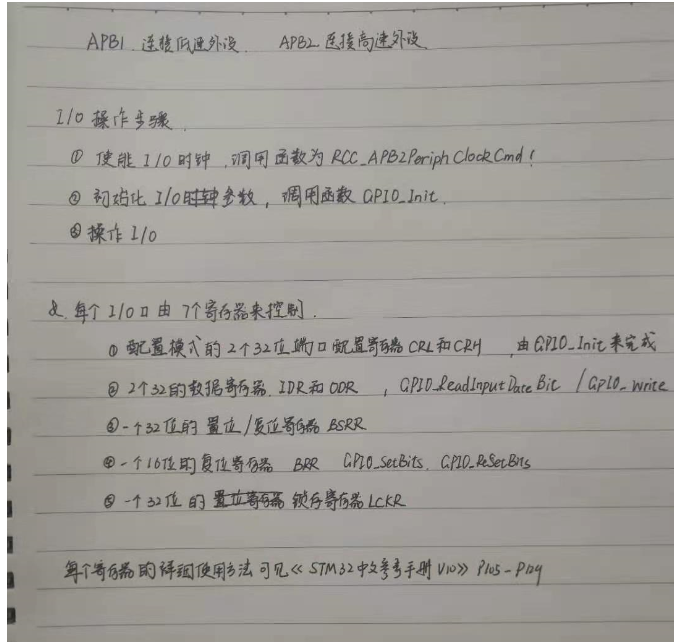 APB1 连接低速外设 APB2 连接高速外设
I/O 操作步骤
① 使能 I/O 时钟,调用函数为 RCC_APB2PeriphClockCmd!
② 初始化 I/O 时钟参数,调用函数 GPIO_Init.
③ 操作 I/O
每个 I/O 口由 7个寄存器来控制.
① 配置模式的 2个32位端口配置寄存器 CRL和CRH 由 GPIO_Init 来完成
② 2个32的数据寄存器. IDR和ODR , GPIO_ReadInputDateBit / GPIO_write
③ 一个32位的 置位/复位寄存器 BSRR
④ 一个16位的复位寄存器 BRR GPIO_SetBits. GPIO_ReSetBits
⑤ 一个32位的 锁存寄存器 LCKR
每个寄存器的详细使用方法可见《STM32中文参考手册V10》P105-P129